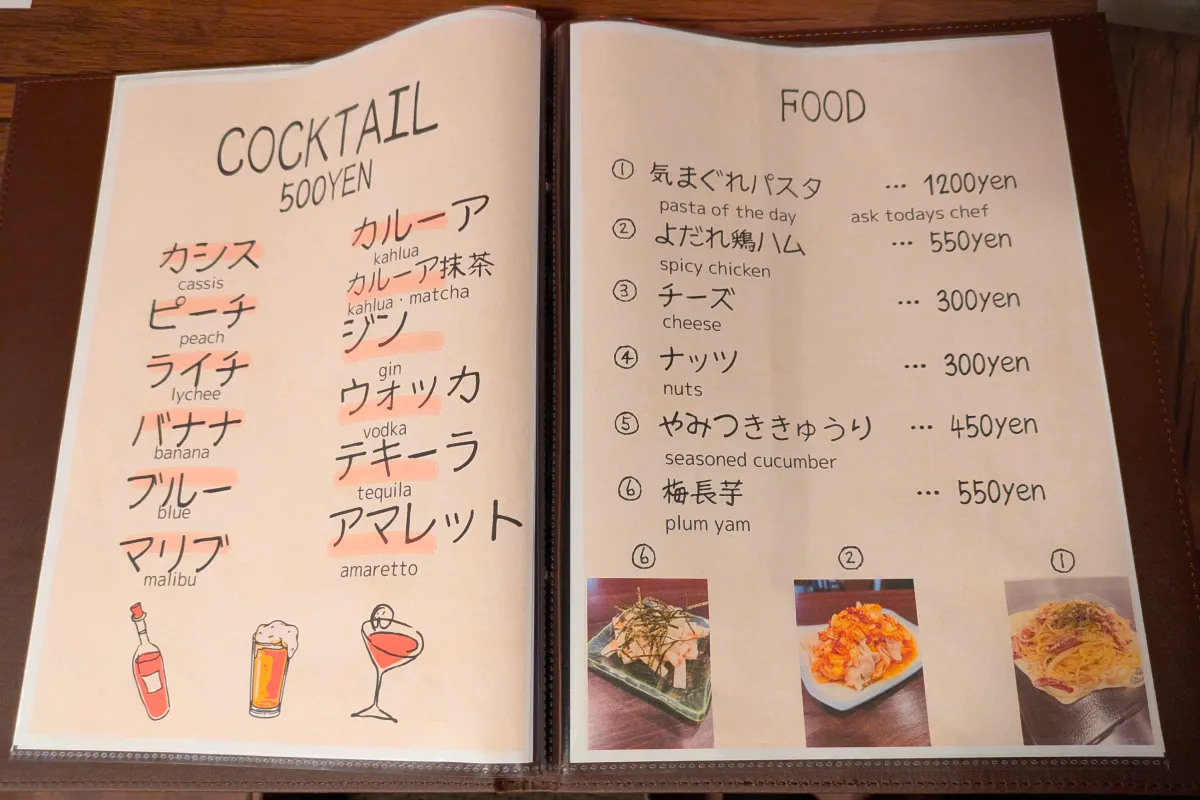 COCKTAIL
500YEN
カシス
cassis
ピーチ
peach
ライチ
lychee
バナナ
banana
ブルー
blue
マリブ
malibu
カルーア
kahlua
カルーア抹茶
kahlua・matcha
ジン
gin
ウォッカ
vodka
テキーラ
tequila
アマレット
amaretto
FOOD
① 気まぐれパスタ … 1200yen
pasta of the day ask todays chef
② よだれ鶏ハム … 550yen
spicy chicken
③ チーズ … 300yen
cheese
④ ナッツ … 300yen
nuts
⑤ やみつききゅうり … 450yen
seasoned cucumber
⑥ 梅長芋 … 550yen
plum yam
⑥ ② ①